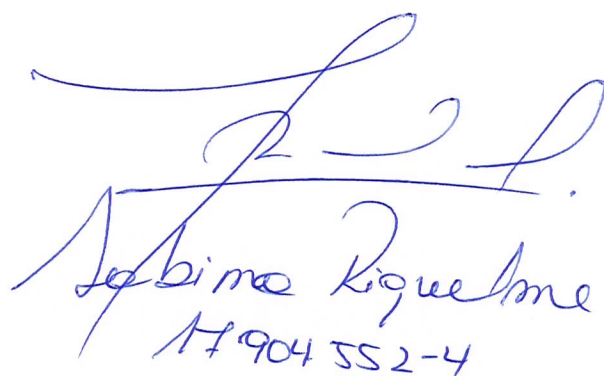 Sabina Riquelme
17904552-4